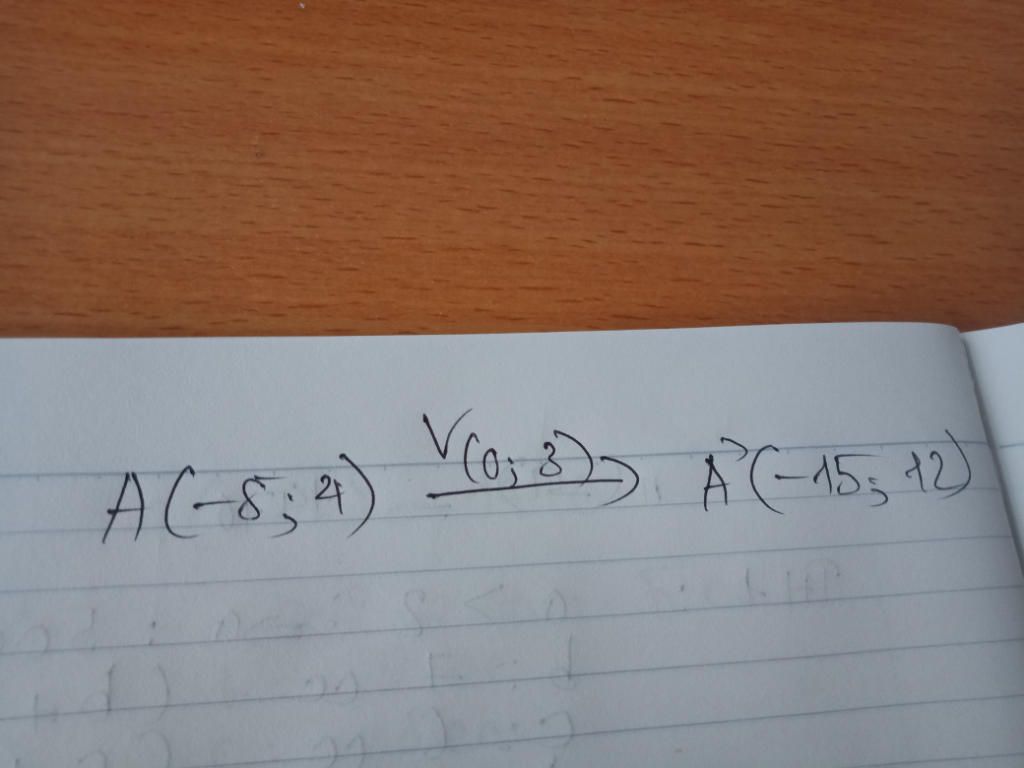 A(-5; 4) V(0; 3) → A'(-15; 12)